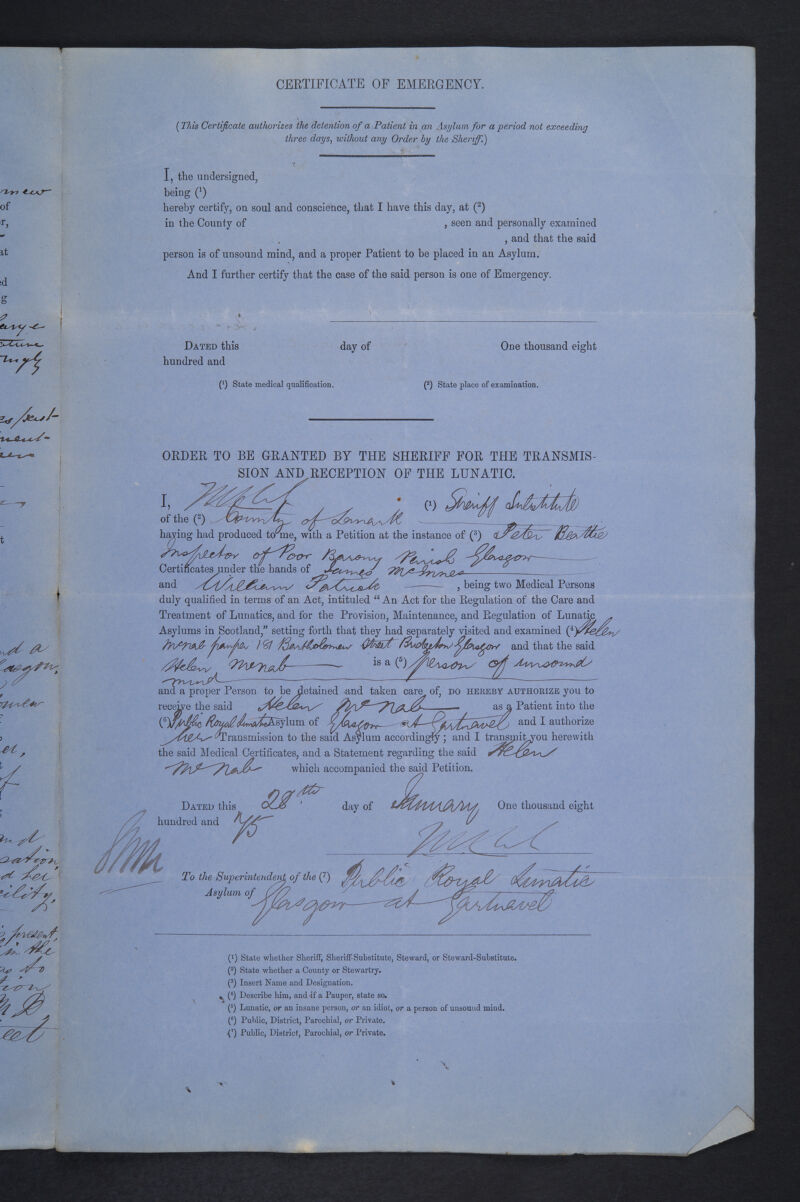 CERTIFICATE OF EMERGENCY.
(This Certificate authorizes the detention of a Patient in an Asylum for a period not exceeding
three days, without any Order by the Sheriff.)
I, the undersigned,
being (¹)
hereby certify, on soul and conscience, that I have this day, at (²)
in the County of , seen and personally examined
, and that the said
person is of unsound mind, and a proper Patient to be placed in an Asylum.
And I further certify that the case of the said person is one of Emergency.
DATED this day of One thousand eight
hundred and
(¹) State medical qualification. (²) State place of examination.
ORDER TO BE GRANTED BY THE SHERIFF FOR THE TRANSMIS-
SION AND RECEPTION OF THE LUNATIC.
I, (¹) Sheriff Substitute
of the (²) County of Lanark
having had produced to me, with a Petition at the instance of (³) Peter Beattie
Inspector of Poor Barony Parish Glasgow
Certificates under the hands of James McInnes
and William Patrick , being two Medical Persons
duly qualified in terms of an Act, intituled "An Act for the Regulation of the Care and
Treatment of Lunatics, and for the Provision, Maintenance, and Regulation of Lunatic
Asylums in Scotland," setting forth that they had separately visited and examined (⁴) Helen
McNab pauper 191 Bartholomew Street Bridgeton Glasgow and that the said
Helen McNab is a (⁵) person of unsound
mind
and a proper Person to be detained and taken care of, DO HEREBY AUTHORIZE you to
receive the said Helen McNab as a Patient into the
(⁶) Public Royal Lunatic Asylum of Glasgow at Gartnavel and I authorize
her Transmission to the said Asylum accordingly; and I transmit you herewith
the said Medical Certificates, and a Statement regarding the said Helen
McNab which accompanied the said Petition.
DATED this 28th day of January One thousand eight
hundred and 75
To the Superintendent of the (⁷) Public Royal Lunatic
Asylum of Glasgow at Gartnavel
(¹) State whether Sheriff, Sheriff-Substitute, Steward, or Steward-Substitute.
(²) State whether a County or Stewartry.
(³) Insert Name and Designation.
(⁴) Describe him, and if a Pauper, state so.
(⁵) Lunatic, or an insane person, or an idiot, or a person of unsound mind.
(⁶) Public, District, Parochial, or Private.
(⁷) Public, District, Parochial, or Private.